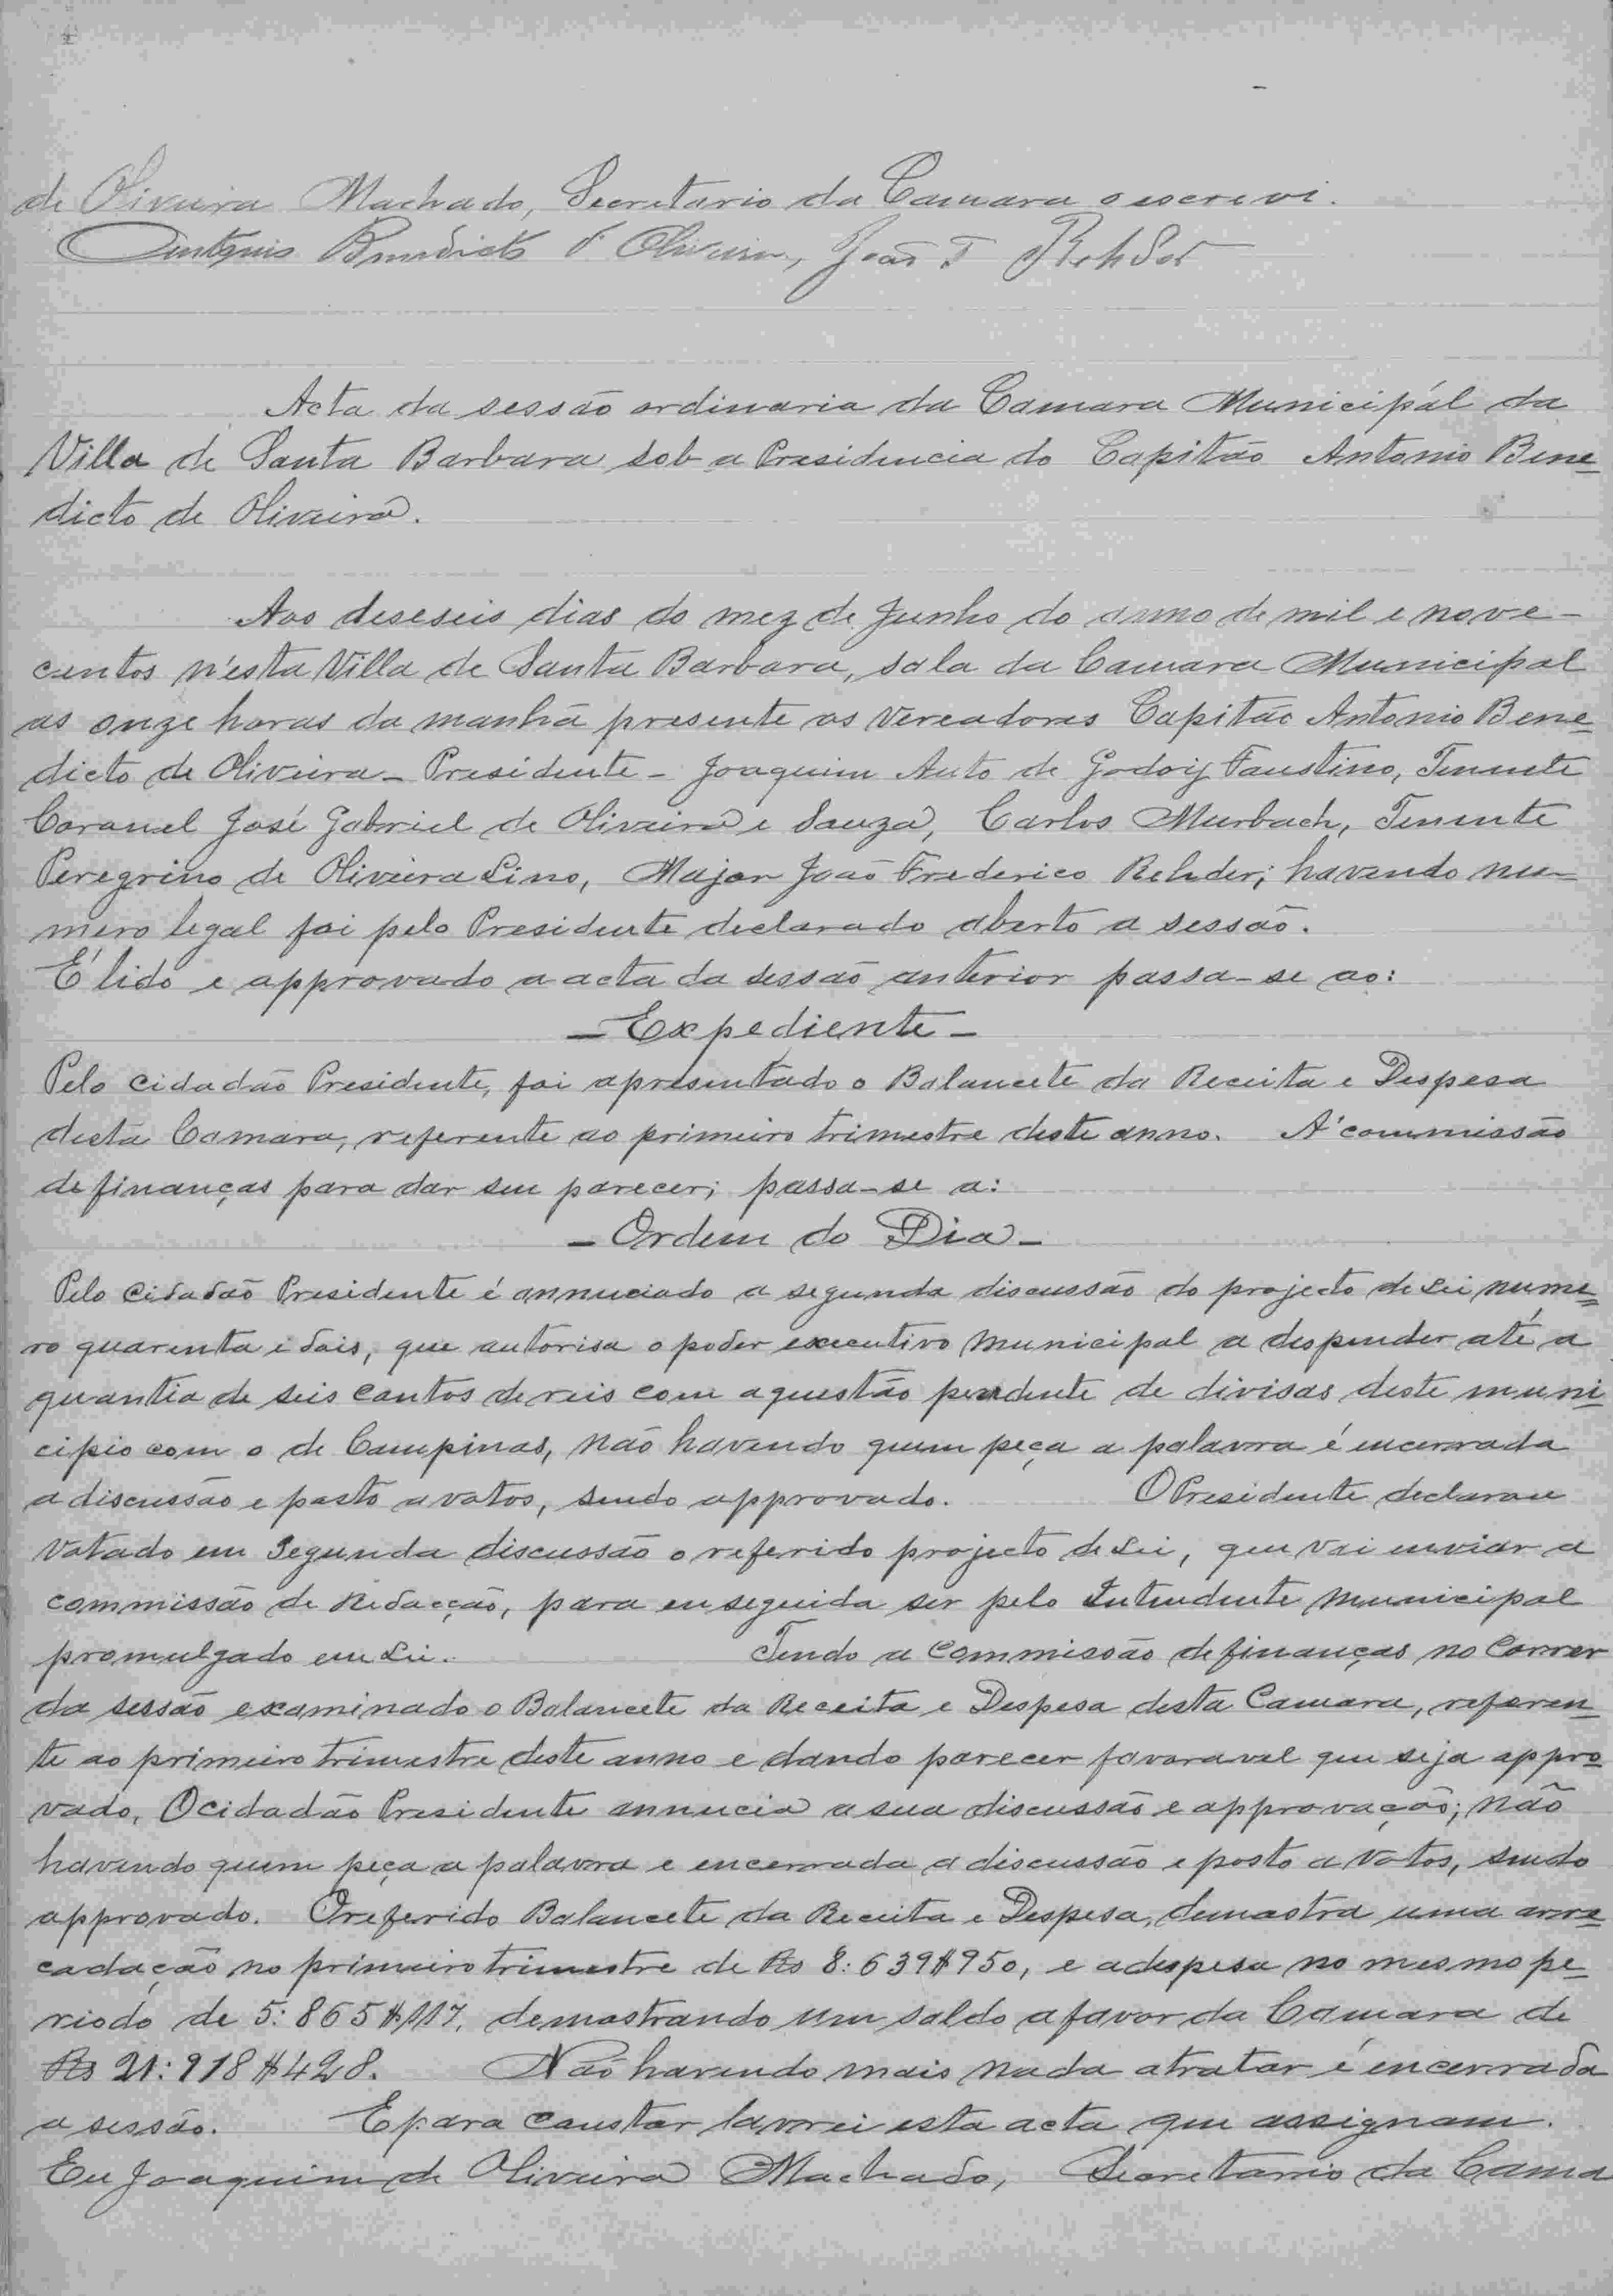 de Oliveira Machado, Secretario da Camara o escrevi.
Antonio Benedicto d' Oliveira, João F Rehder
Acta da sessão ordinaria da Camara Municipál da
Villa de Santa Barbara sob a Presidencia do Capitão Antonio Bene
dicto de Oliveira.
Aos deseseis dias do mez de Junho do anno de mil e nove-
centos n'esta Villa de Santa Barbara, sala da Camara Municipal
as onze horas da manhã presente os Vereadores Capitão Antonio Bene
dicto de Oliveira - Presidente - Joaquim Auto de Godoij Faustino, Tenente
Coronel José Gabriel de Oliveira e Souza, Carlos Murbach, Tenente
Peregrino de Oliveira Lino, Major João Frederico Rehder; havendo nu-
mero legal foi pelo Presidente declarado aberto a sessão.
E' lido e approvado a acta da sessão anterior passa-se ao:
- Expediente -
Pelo cidadão Presidente, foi apresentado o Balancete da Receita e Despesa
desta Camara, referente ao primeiro trimestre deste anno. A' commissão
de finanças para dar seu parecer; passa-se a:
- Ordem do Dia -
Pelo Cidadão Presidente é annuciado a segunda discussão do projecto de Lei nume
ro quarenta e dois, que autorisa o poder executivo Municipal a despender até a
quantia de seis contos de reis com a questão pendente de divisas deste muni
cipio com o de Campinas, não havendo quem peça a palavra é encerrada
a discussão e posto a votos, sendo approvado. O Presidente declarou
votado em Segunda discussão o referido projecto de Lei, que vai enviar a
commissão de Redacção, para em seguida ser pelo Intendente Municipal
promulgado em Lei. Tendo a Commissão de finanças no Correr
da sessão examinado o Balancete da Receita e Despesa desta Camara, referen
te ao primeiro trimestre deste anno e dando parecer favoravel que seja appro
vado, O cidadão Presidente annucia a sua discussão e approvação; não
havendo quem peça a palavra e encerrada a discussão e posto a votos, sendo
approvado. O referido Balancete da Receita e Despesa, demostra uma arre
cadação no primeiro trimestre de Rs 8:639$950, e a despesa no mesmo pe
riodo de 5:865$117, demostrando um saldo a favor da Camara de
Rs 21:918$428. Não havendo mais nada a tratar é encerrada
a sessão. E para constar lavrei esta acta que assignam.
Eu Joaquim de Oliveira Machado, Secretario da Cama